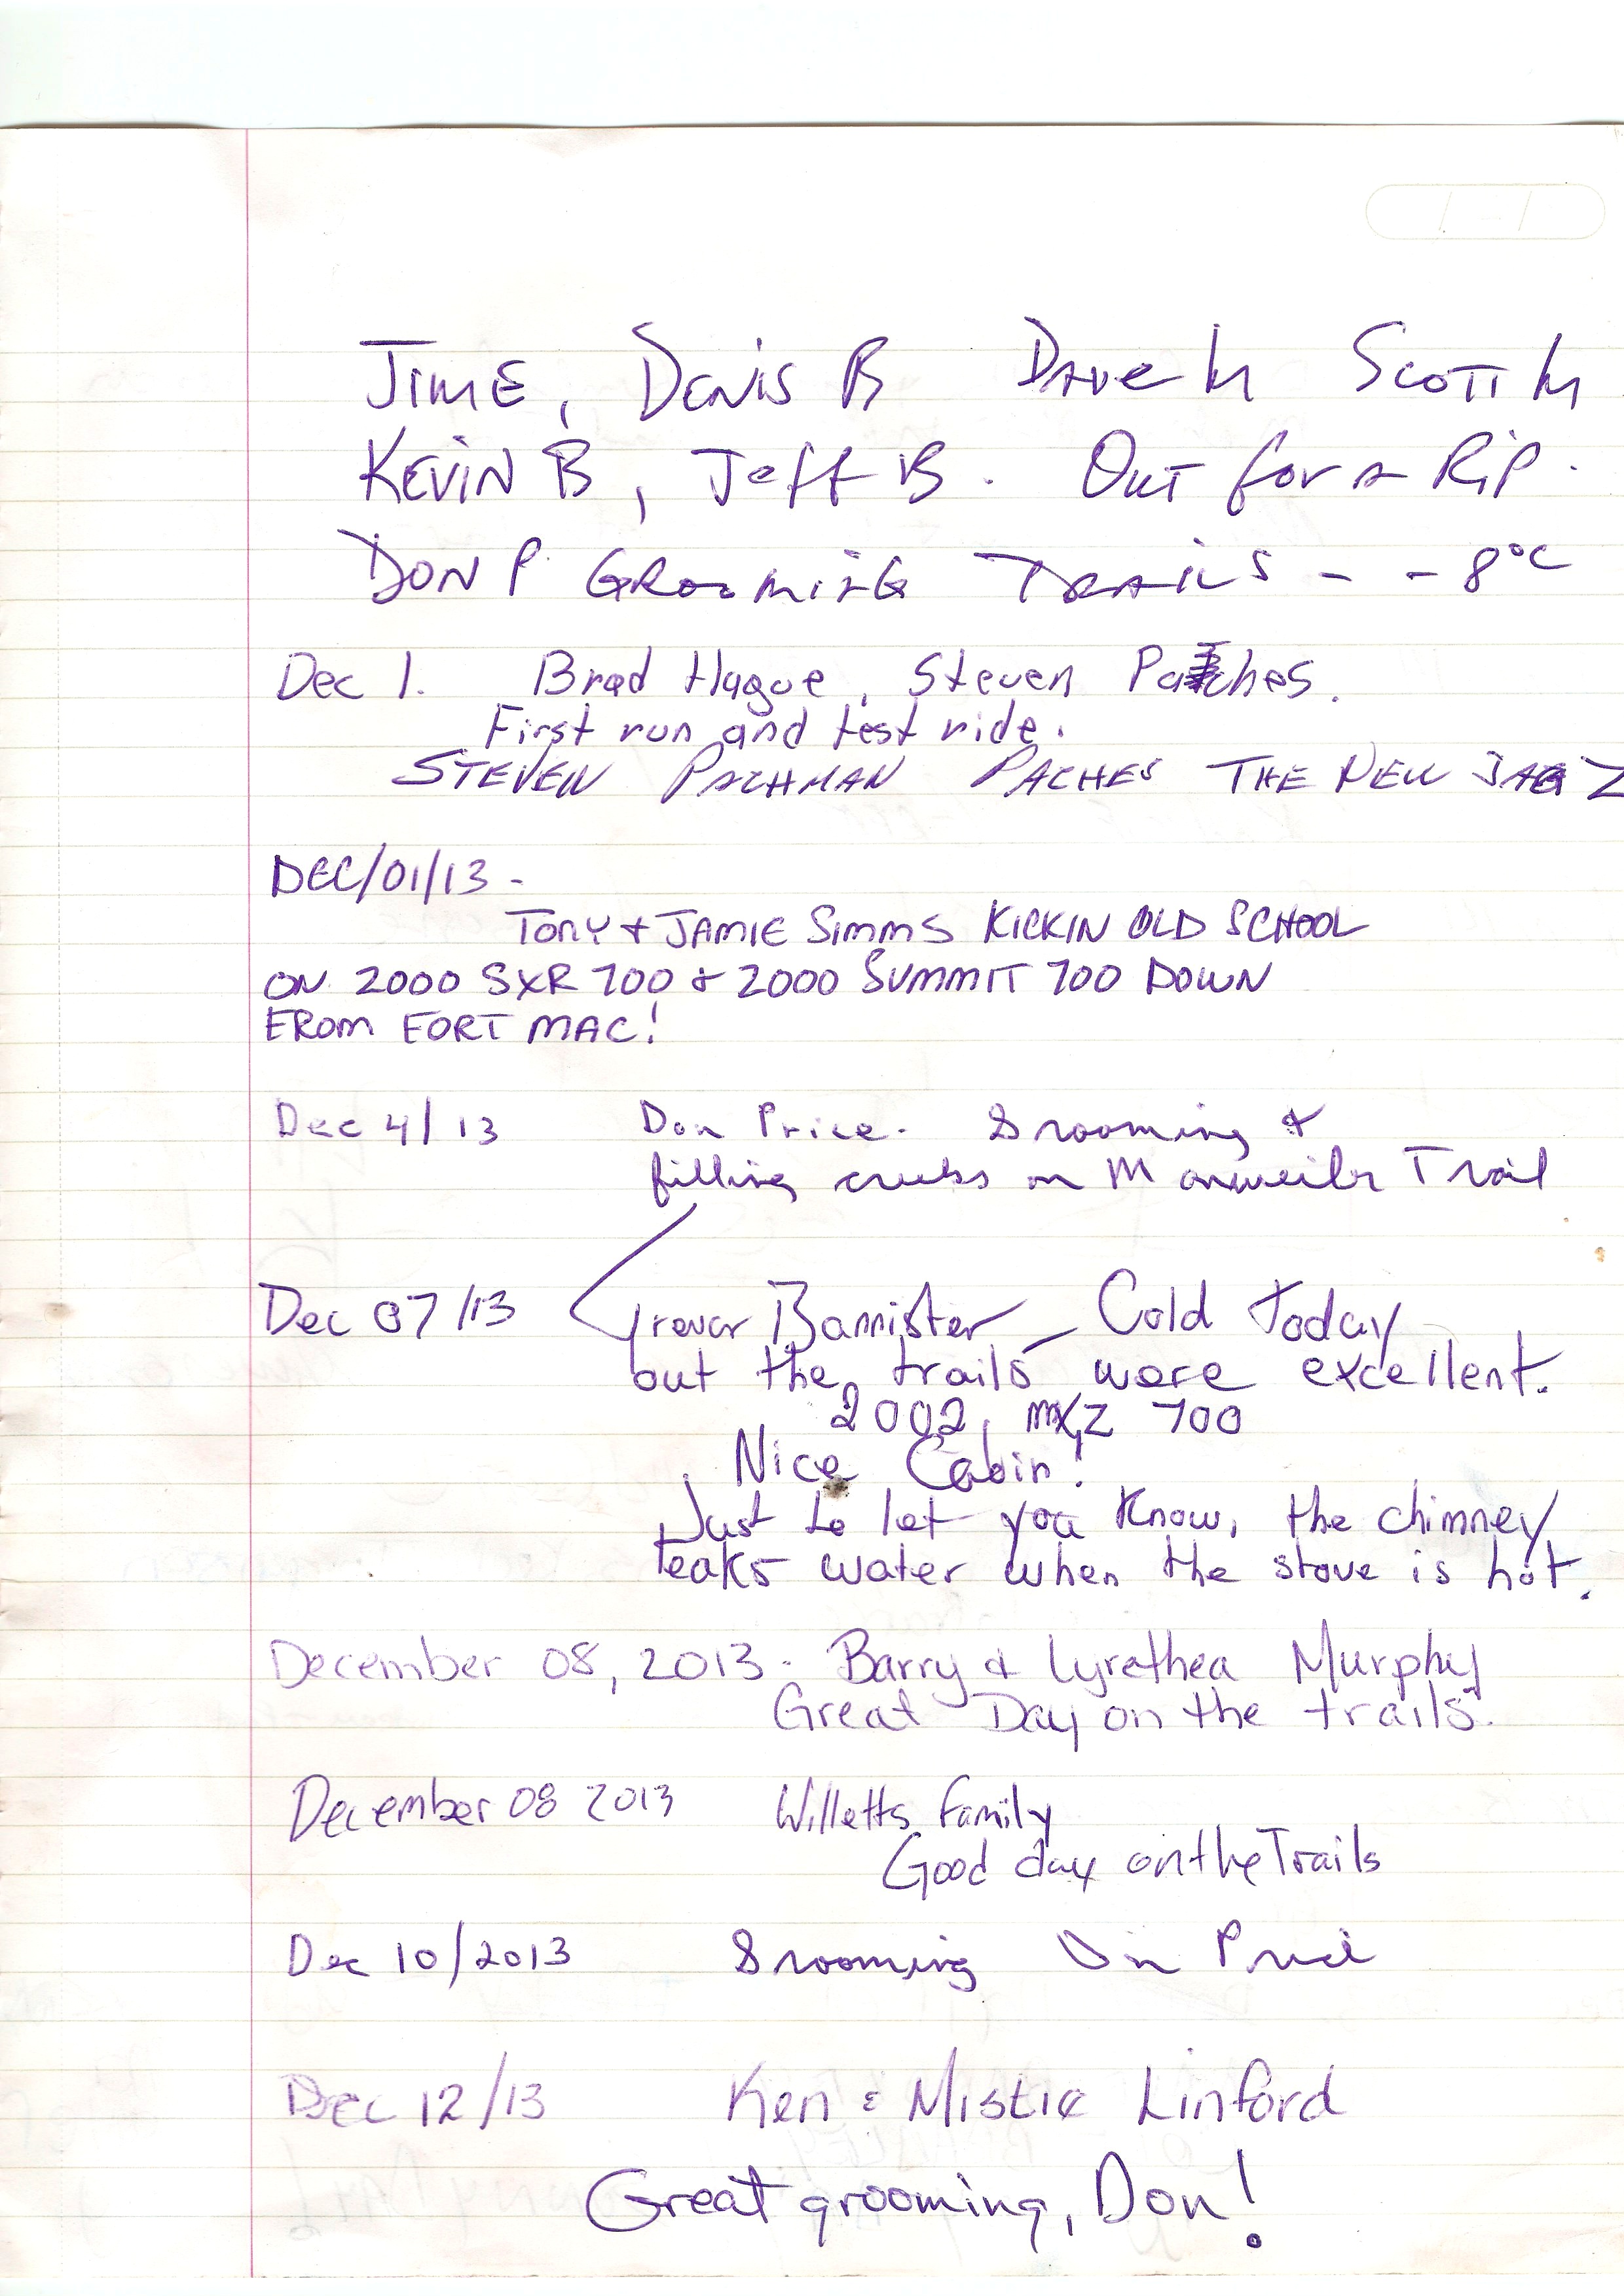 JIM E, DENIS B DAVE M SCOTT M
KEVIN B, Jeff B. OUT for A RiP.
DON P. GROOMING TRAILS - -8°C
Dec 1. Brad Hague, Steven Patches.
First run and test ride.
STEVEN PACHMAN PACHES THE NEW JAG Z
DEC/01/13 -
TONY + JAMIE SIMMS KICKIN OLD SCHOOL
ON 2000 SXR 700 & 2000 SUMMIT 700 DOWN
FROM FORT MAC!
Dec 4/13 Don Price. Grooming &
filling creeks on Manweiler Trail
Dec 07/13 Trevor Bannister - Cold Today
but the trails were excellent.
2002, mxz 700
Nice Cabin!
Just to let you know, the chimney
leaks water when the stove is hot.
December 08, 2013 - Barry & Lyrethea Murphy
Great Day on the trails.
December 08 2013 Willetts Family
Good day on the Trails
Dec 10/2013 Grooming Don Price
Dec 12/13 Ken & Mistie Linford
Great grooming, Don!